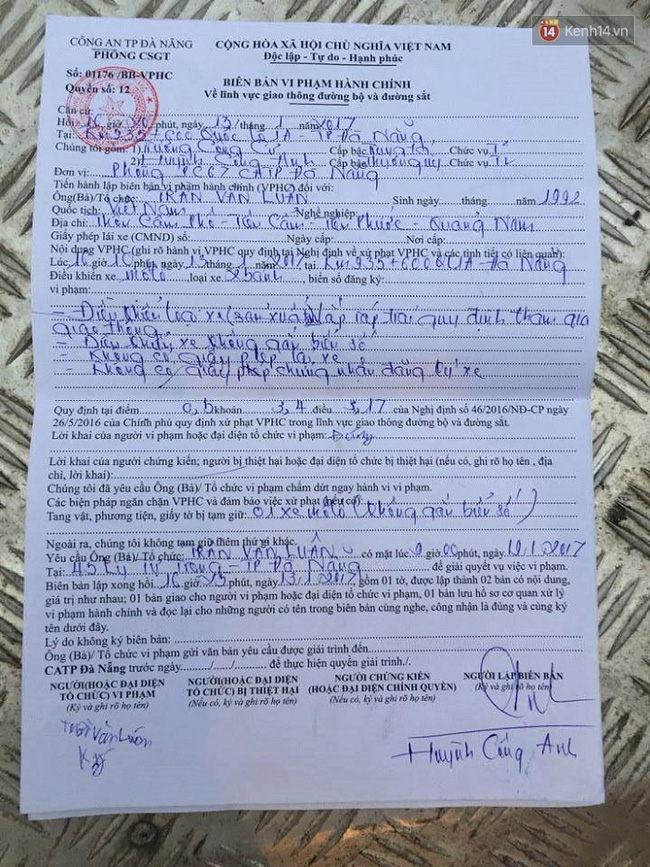 14 Kenh14.vn
CÔNG AN TP ĐÀ NẴNG
PHÒNG CSGT
CỘNG HÒA XÃ HỘI CHỦ NGHĨA VIỆT NAM
Độc lập - Tự do - Hạnh phúc
Số: 01176 /BB-VPHC
Quyển số: 12
BIÊN BẢN VI PHẠM HÀNH CHÍNH
Về lĩnh vực giao thông đường bộ và đường sắt
Căn cứ
Hồi 16 giờ phút, ngày 13 tháng 1 năm 2017
Tại: Km 935+600 Quốc lộ 1A - TP Đà Nẵng
Chúng tôi gồm: Trương Công Cấp bậc Chức vụ
2) Huỳnh Công Anh Cấp bậc Chức vụ
Đơn vị: Phòng PC67 CATP Đà Nẵng
Tiến hành lập biên bản vi phạm hành chính (VPHC) đối với:
Ông(Bà)/Tổ chức: TRẦN VĂN LUÂN Sinh ngày tháng năm 1992
Quốc tịch: Việt Nam Nghề nghiệp:
Địa chỉ: Thôn Cẩm Phô - Tiên Cẩm - Tiên Phước - Quảng Nam
Giấy phép lái xe (CMND) số: Ngày cấp: Nơi cấp:
Nội dung VPHC (ghi rõ hành vi VPHC quy định tại Nghị định về xử phạt VPHC và các tình tiết có liên quan):
Lúc 16 giờ 10 phút, ngày 13 tháng 1 năm 2017 tại Km 935+600 QL1A - Đà Nẵng
Điều khiển xe môtô loại xe: biển số đăng ký:
vi phạm:
- Điều khiển loại xe (sản xuất) lắp ráp trái quy định tham gia
giao thông
- Điều khiển xe không gắn biển số
- Không có giấy phép lái xe
- Không có giấy phép chứng nhận đăng ký xe
Quy định tại điểm a, b khoản 3,4 điều 17 của Nghị định số 46/2016/NĐ-CP ngày
26/5/2016 của Chính phủ quy định xử phạt VPHC trong lĩnh vực giao thông đường bộ và đường sắt.
Lời khai của người vi phạm hoặc đại diện tổ chức vi phạm: Đúng
Lời khai của người chứng kiến; người bị thiệt hại hoặc đại diện tổ chức bị thiệt hại (nếu có, ghi rõ họ tên , địa
chỉ, lời khai):
Chúng tôi đã yêu cầu Ông (Bà)/ Tổ chức vi phạm chấm dứt ngay hành vi vi phạm.
Các biện pháp ngăn chặn VPHC và đảm bảo việc xử phạt (nếu có):
Tang vật, phương tiện, giấy tờ bị tạm giữ: 01 xe môtô (không gắn biển số)
Ngoài ra, chúng tôi không tạm giữ thêm thứ gì khác.
Yêu cầu Ông (Bà)/ Tổ chức: TRẦN VĂN LUÂN có mặt lúc giờ 00 phút, ngày 19.1.2017
Tại: 45 Lý Tự Trọng - TP Đà Nẵng để giải quyết vụ việc vi phạm.
Biên bản lập xong hồi 16 giờ phút, ngày 13.1.2017, gồm 01 tờ, được lập thành 02 bản có nội dung,
giá trị như nhau; 01 bản giao cho người vi phạm hoặc đại diện tổ chức vi phạm, 01 bản lưu hồ sơ cơ quan xử lý
vi phạm hành chính và đọc lại cho những người có tên trong biên bản cùng nghe, công nhận là đúng và cùng ký
tên dưới đây.
Lý do không ký biên bản:
Ông (Bà)/ Tổ chức vi phạm gửi văn bản yêu cầu được giải trình đến
CATP Đà Nẵng trước ngày...../...../..... để thực hiện quyền giải trình./.
NGƯỜI(HOẶC ĐẠI DIỆN NGƯỜI(HOẶC ĐẠI DIỆN NGƯỜI CHỨNG KIẾN NGƯỜI LẬP BIÊN BẢN
TỔ CHỨC) VI PHẠM TỔ CHỨC) BỊ THIỆT HẠI (HOẶC ĐẠI DIỆN CHÍNH QUYỀN) (Ký và ghi rõ họ tên)
(Ký và ghi rõ họ tên) (Nếu có, ký và ghi rõ họ tên) (Nếu có, ký và ghi rõ họ tên)
Trần Văn Luân
Huỳnh Công Anh